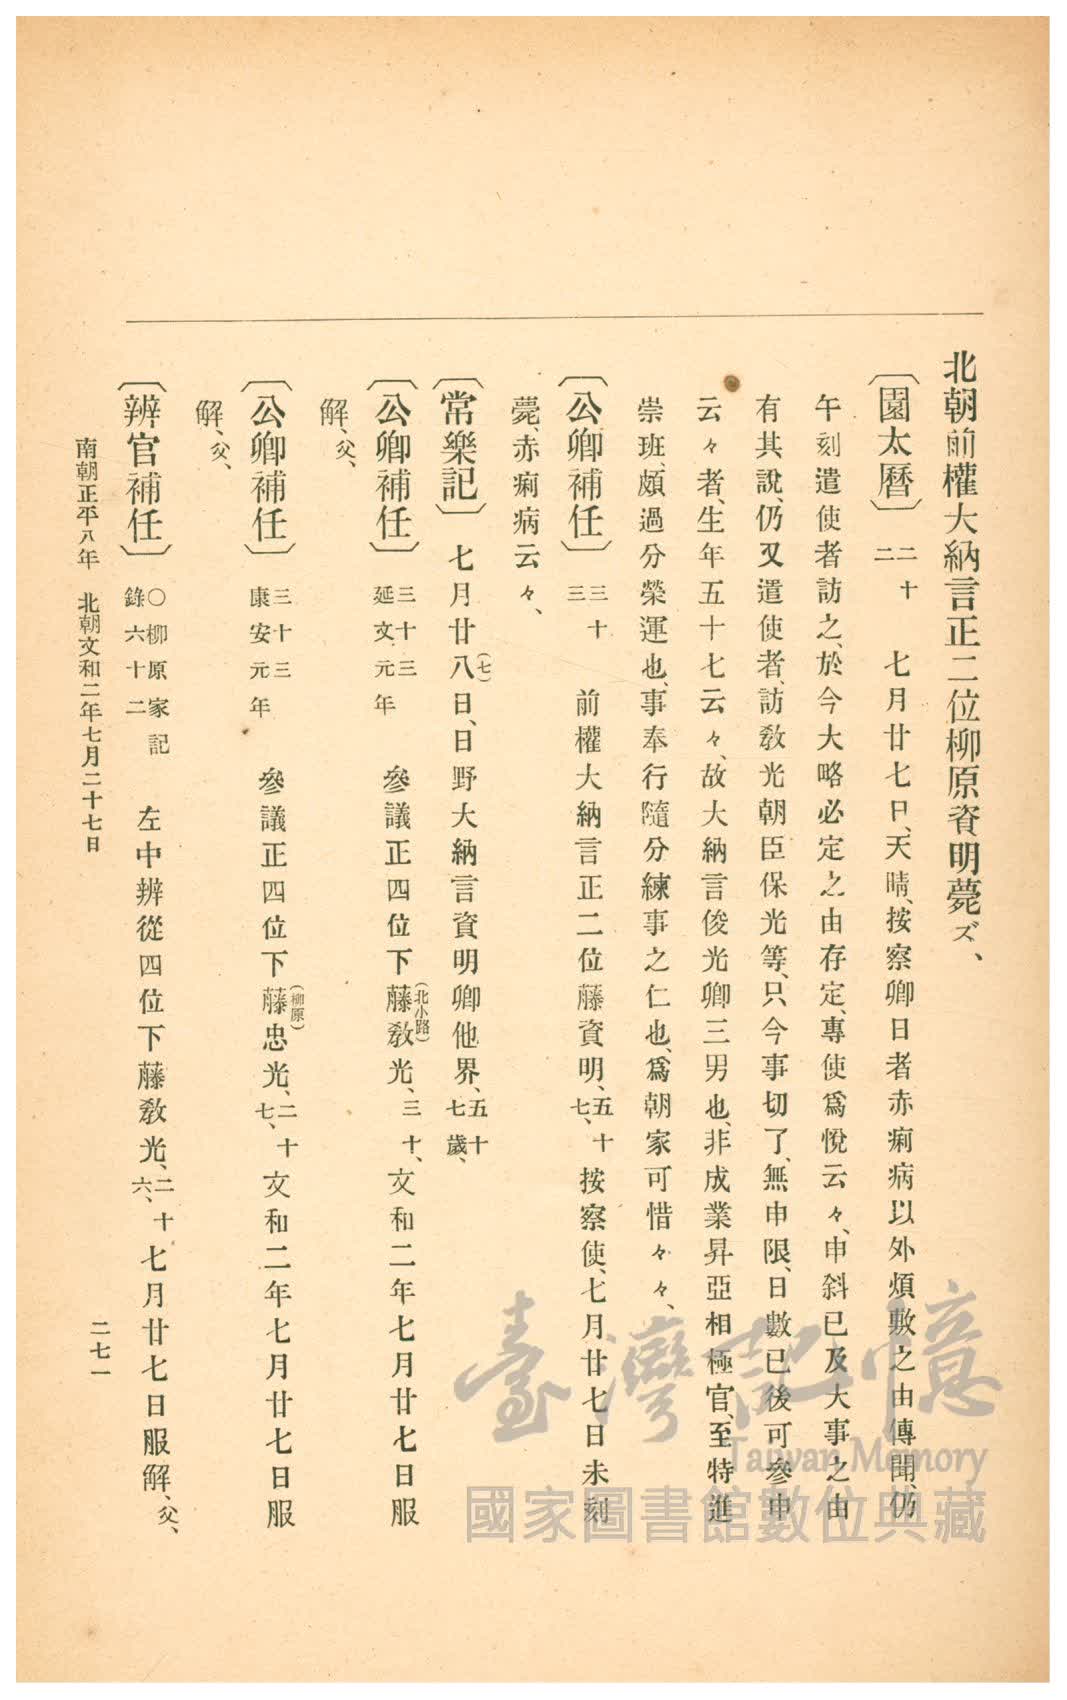 北朝前權大納言正二位柳原資明薨ズ、
〔園太曆〕二十二 七月廿七日、天晴、按察卿日者赤痢病以外煩敷之由傳聞、仍
午刻遣使者訪之、於今大略必定之由存定、專使爲悅云々、申斜已及大事之由
有其說、仍又遣使者、訪敎光朝臣保光等、只今事切了、無申限、日數已後可參申
云々者、生年五十七云々、故大納言俊光卿三男也、非成業昇亞相極官、至特進
崇班、頗過分榮運也、事奉行隨分練事之仁也、爲朝家可惜々々、
〔公卿補任〕三十三 前權大納言正二位藤資明、五十七、按察使、七月廿七日未刻
薨、赤痢病云々、
〔常樂記〕 七月廿八(七)日、日野大納言資明卿他界、五十七歲、
〔公卿補任〕三十三延文元年 參議正四位下藤(北小路)敎光、三十、文和二年七月廿七日服
解、父、
〔公卿補任〕三十三康安元年 參議正四位下藤(柳原)忠光、二十七、文和二年七月廿七日服
解、父、
〔辨官補任〕○柳原家記錄六十二 左中辨從四位下藤敎光、二十六、七月廿七日服解、父、
南朝正平八年 北朝文和二年七月二十七日
二七一
臺灣記憶
Taiwan Memory
國家圖書館數位典藏